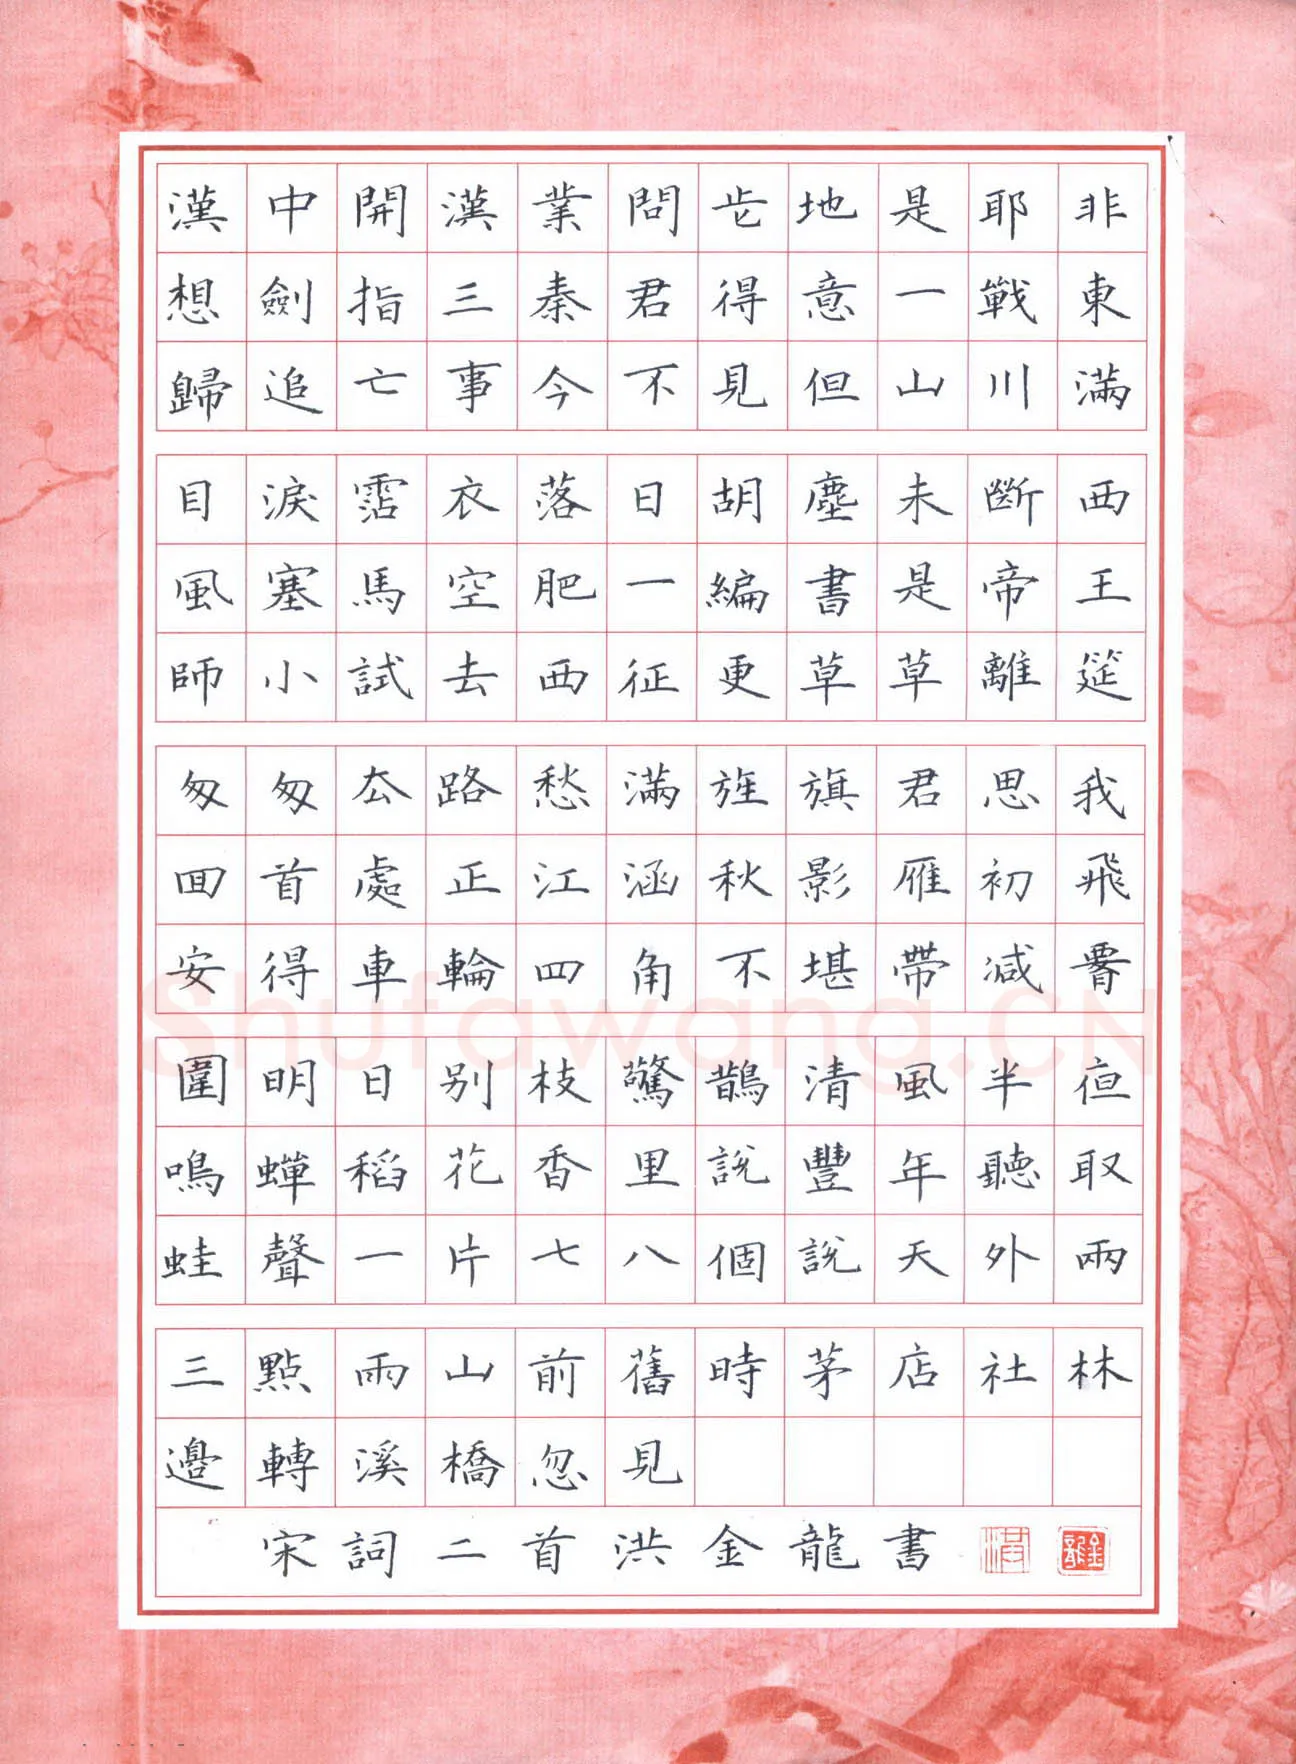 漢中開漢業問此地是耶非
想劍指三秦君得意一戰東
歸追亡事今不見但山川滿
目淚霑衣落日胡塵未斷西
風塞馬空肥一編書是帝王
師小試去西征更草草離筵
匆匆厺路愁滿旌旗君思我
囬首處正江涵秋影雁初飛
安得車輪四角不堪帶減腰
圍明日別枝驚鵲清風半亱
鳴蟬稻花香里說豐年聽取
蛙聲一片七八個說天外兩
三點雨山前舊時茅店社林
邊轉溪橋忽見
宋詞二首洪金龍書 洪 金龍
Shufawang.CN